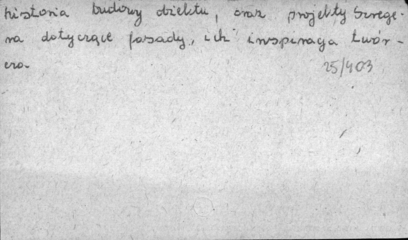 historia budowy obiektu, oraz projekty Szrege-
ra dotyczące fasady, ich inspiracja twór-
cza.
25/403